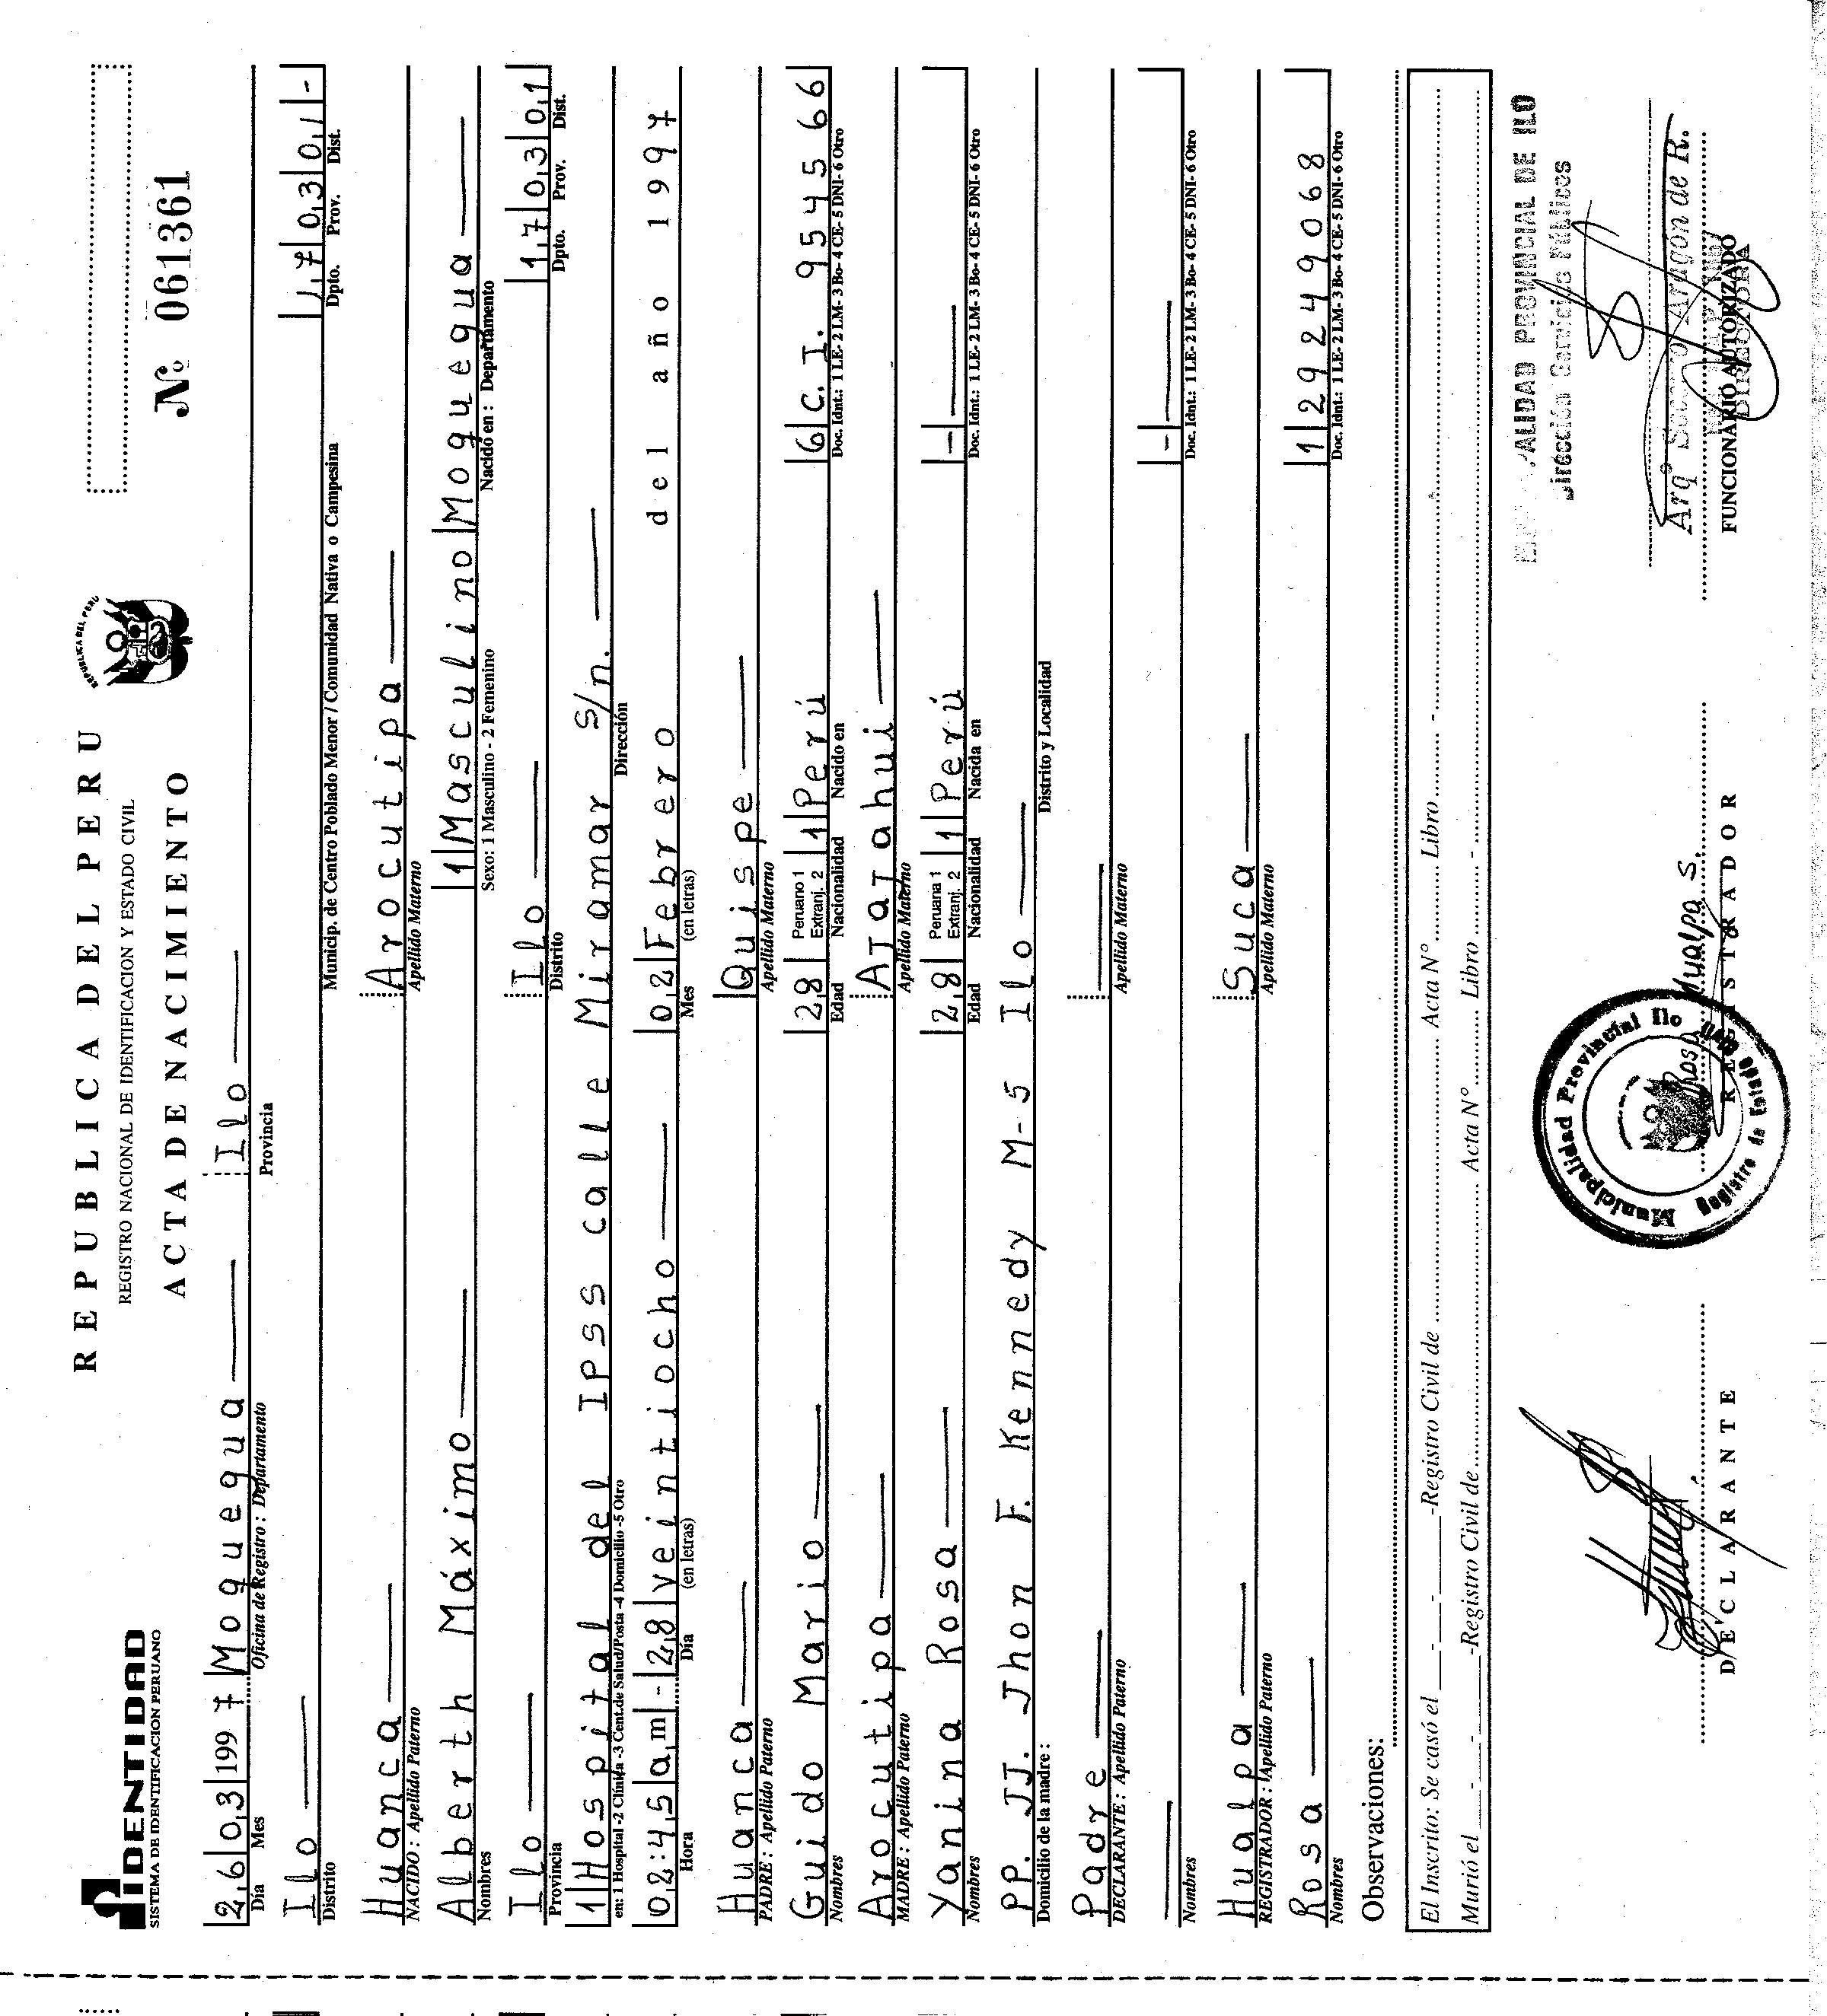 IDENTIDAD
SISTEMA DE IDENTIFICACION PERUANO
REPUBLICA DEL PERU
REGISTRO NACIONAL DE IDENTIFICACION Y ESTADO CIVIL
ACTA DE NACIMIENTO
REPUBLICA DEL PERU
Nº 061361
2,6|0,3|1997|Moquegua Ilo
Día Mes Oficina de Registro : Departamento Provincia
Ilo 1,7|0,3|0,1|-
Distrito Municip. de Centro Poblado Menor / Comunidad Nativa o Campesina Dpto. Prov. Dist.
Huanca Arocutipa
NACIDO : Apellido Paterno Apellido Materno
Alberth Máximo 1|Masculino|Moquegua
Nombres Sexo: 1 Masculino - 2 Femenino Nacido en : Departamento
Ilo Ilo 1,7|0,3|0,1
Provincia Distrito Dpto. Prov. Dist.
1|Hospital del IPSS calle Miramar s/n.
en: 1 Hospital -2 Clínica -3 Cent.de Salud/Posta -4 Domicilio -5 Otro Dirección
02:45 a,m|-|2,8|veintiocho 0,2|Febrero del año 1997
Hora Día (en letras) Mes (en letras)
Huanca Quispe
PADRE : Apellido Paterno Apellido Materno
Guido Mario 2,8| Peruano 1 Extranj. 2 |1|Perú 6|C.I. 9545566
Nombres Edad Nacionalidad Nacido en Doc. Idnt.: 1 LE- 2 LM- 3 Bo- 4 CE- 5 DNI- 6 Otro
Arocutipa AJaJahui
MADRE : Apellido Paterno Apellido Materno
Yanina Rosa 2,8| Peruana 1 Extranj. 2 |1|Perú -
Nombres Edad Nacionalidad Nacida en Doc. Idnt.: 1 LE- 2 LM- 3 Bo- 4 CE- 5 DNI- 6 Otro
PP. JJ. Jhon F. Kennedy M-5 Ilo
Domicilio de la madre : Distrito y Localidad
Padre
DECLARANTE : Apellido Paterno Apellido Materno
-
Nombres Doc. Idnt.: 1 LE- 2 LM- 3 Bo- 4 CE- 5 DNI- 6 Otro
Hualpa Suca
REGISTRADOR : Apellido Paterno Apellido Materno
Rosa 1|29249068
Nombres Doc. Idnt.: 1 LE- 2 LM- 3 Bo- 4 CE- 5 DNI- 6 Otro
Observaciones:
El Inscrito: Se casó el ___-___-___-Registro Civil de .......... Acta Nº .......... Libro .......... -
Murió el ___-___-___-Registro Civil de .......... Acta Nº .......... Libro .......... -
ALIDAD PROVINCIAL DE ILO
Dirección Servicios Públicos
Municipalidad Provincial Ilo
Registro de Estado Civil
Rosa Hualpa S.
Arqº Socorro Aragon de R.
DIRECTORA
DECLARANTE REGISTRADOR FUNCIONARIO AUTORIZADO